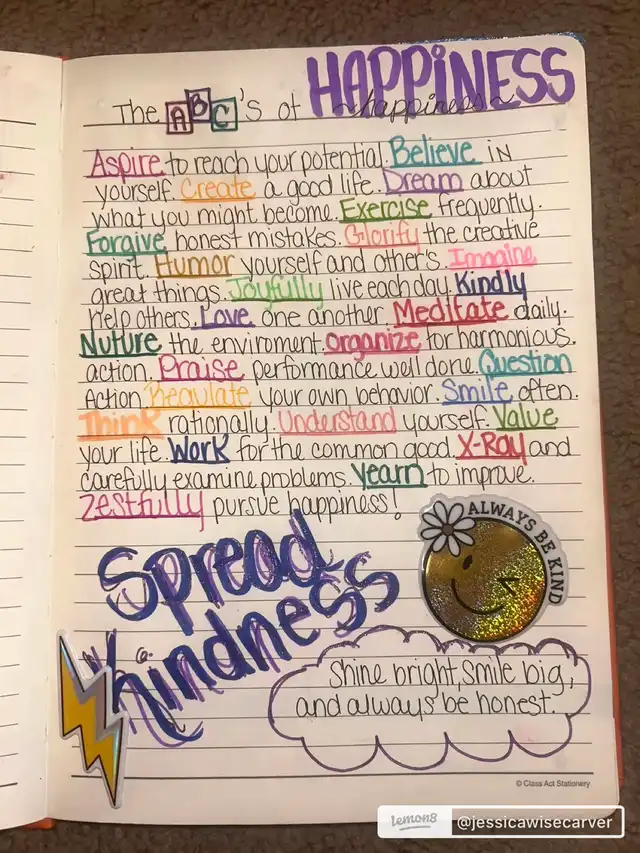 The ABC's of HAPPINESS
~happiness~
Aspire to reach your potential. Believe in
yourself. Create a good life. Dream about
what you might become. Exercise frequently.
Forgive honest mistakes. Glorify the creative
spirit. Humor yourself and other's. Imagine
great things. Joyfully live each day. Kindly
help others. Love one another. Meditate daily.
Nuture the enviroment. Organize for harmonious
action. Praise performance well done. Question
Action. Regulate your own behavior. Smile often.
Think rationally. Understand yourself. Value
your life. Work for the common good. X-Ray and
carefully examine problems. Yearn to improve.
Zestfully pursue happiness!
ALWAYS BE KIND
Spread
Kindness
Shine bright, smile big,
and always be honest.
© Class Act Stationery
lemon8 @jessicawisecarver